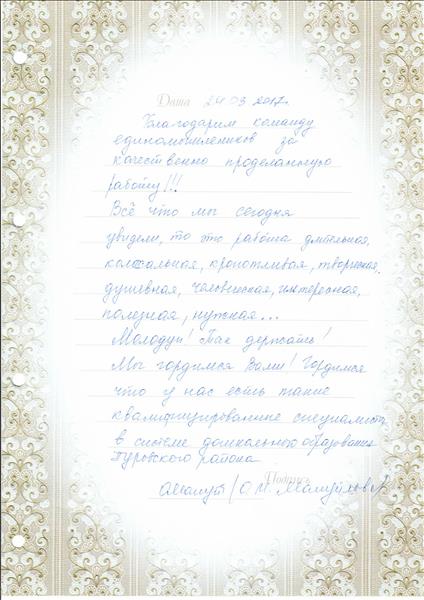 Дата 24.03.2017г.
Благодарим команду
единомышленников за
качественно проделанную
работу!!!
Всё что мы сегодня
увидели, то это работа длительная,
колоссальная, кропотливая, творческая,
душевная, человеческая, интересная,
полезная, нужная...
Молодцы! Так держать!
Мы гордимся Вами! Гордимся
что у нас есть такие
квалифицированные специалисты
в системе дошкольного образования
Пуровского района
Подпись